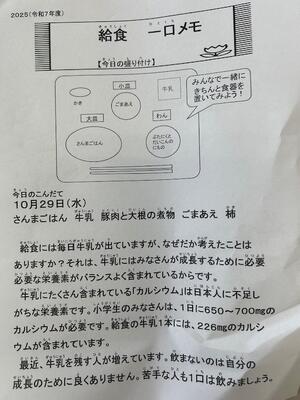 2025(令和7年度)
給食 一口メモ
【今日の盛り付け】
みんなで一緒に
きちんと食器を
置いてみよう！
小皿
牛乳
かき
ごまあえ
大皿
わん
さんまごはん
ぶたにくと
だいこんの
にもの
今日のこんだて
10月29日(水)
さんまごはん 牛乳 豚肉と大根の煮物 ごまあえ 柿
給食には毎日牛乳が出ていますが、なぜだか考えたことは
ありますか？それは、牛乳にはみなさんが成長するために必要
必要な栄養素がバランスよく含まれているからです。
牛乳にたくさん含まれている「カルシウム」は日本人に不足し
がちな栄養素です。小学生のみなさんは、1日に650～700mgの
カルシウムが必要です。給食の牛乳1本には、226mgのカルシ
ウムが含まれています。
最近、牛乳を残す人が増えています。飲まないのは自分の
成長のために良くありません。苦手な人も1口は飲みましょう。